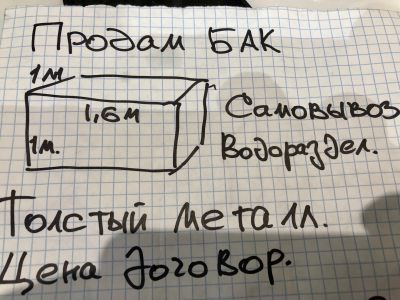 Продам БАК
1м
1,6м
1м.
Самовывоз
Водораздел.
Толстый металл.
Цена договор.